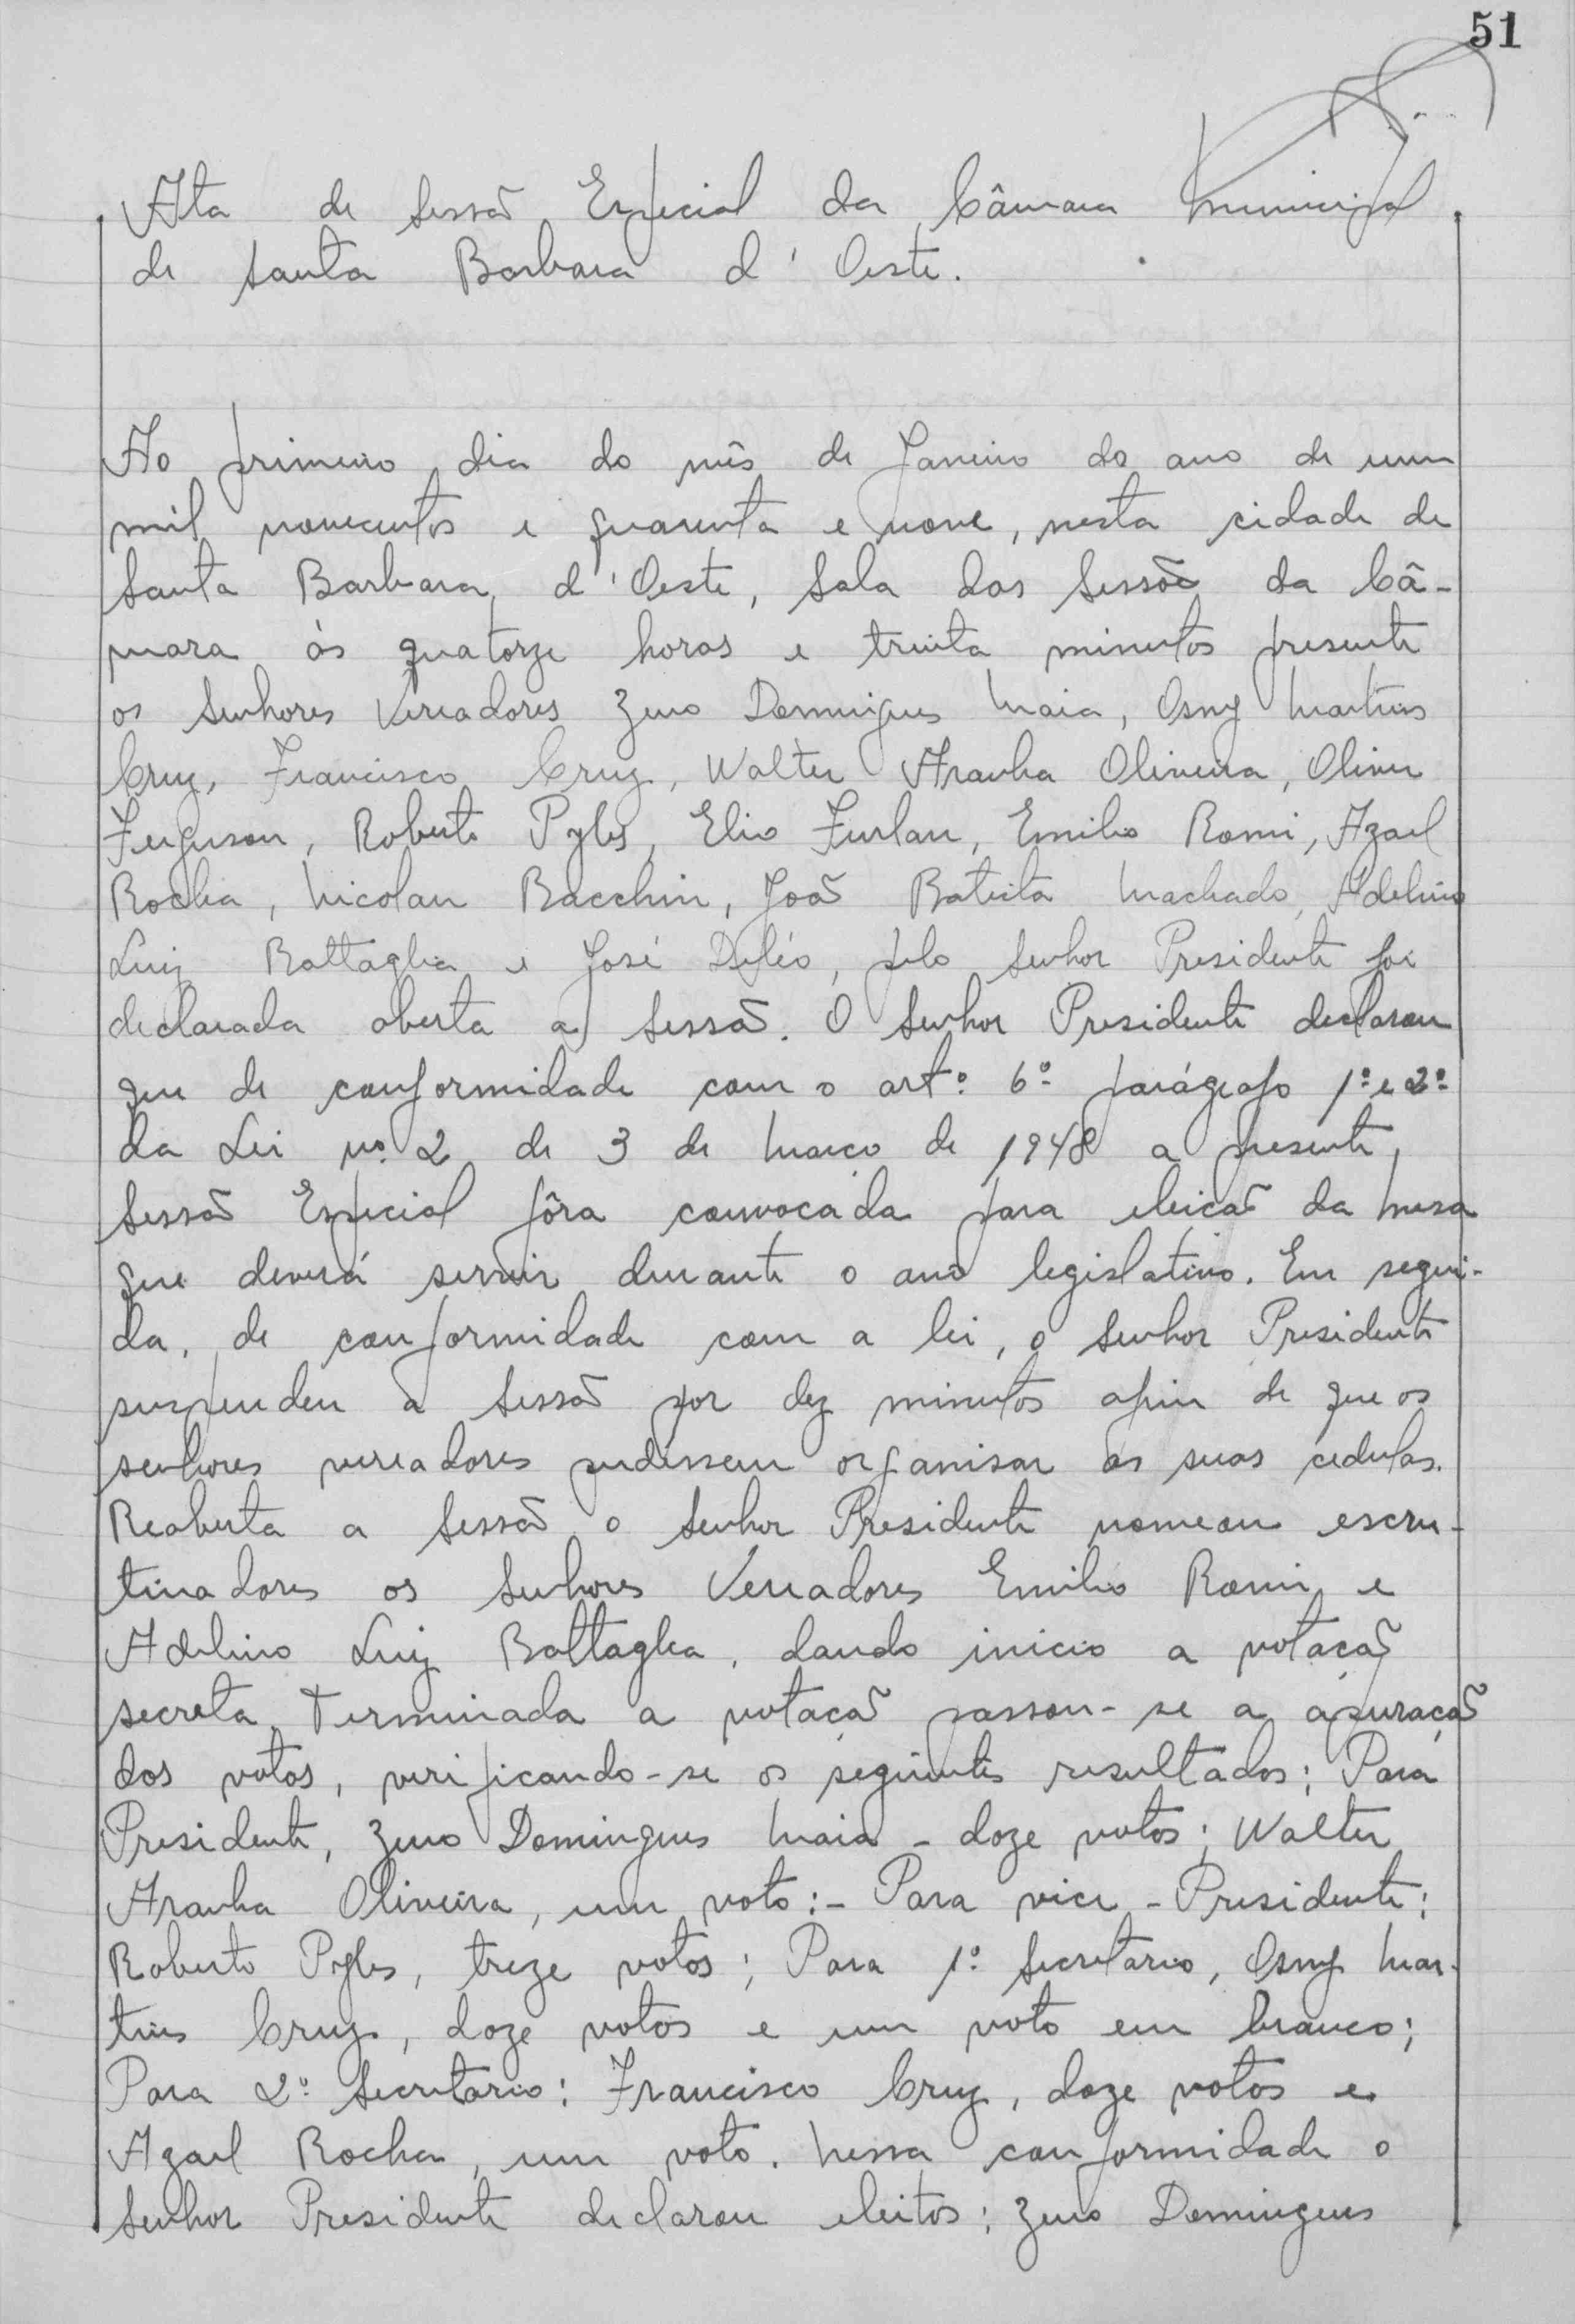 51
Ata de Sessão Especial da Câmara Municipal
de Santa Barbara d'Oeste.
Ao primeiro dia do mês de Janeiro do ano de um
mil novecentos e quarenta e nove, nesta cidade de
Santa Barbara d'Oeste, Sala das Sessões da Câ-
mara ás quatorze horas e trinta minutos presente
os Senhores Vereadores Zeno Domingues Maia, Osny Martins
Cruz, Francisco Cruz, Walter Aranha Oliveira, Oliver
Ferguson, Roberto Pyles, Elio Furlan, Emilio Romi, Azael
Rocha, Nicolau Bacchin, João Batista Machado, Adelino
Luiz Battaglia e José Deléo, pelo Senhor Presidente foi
declarada aberta a Sessão. O Senhor Presidente declarou
que de conformidade com o artº 6º parágrafo 1º e 2º
da Lei nº 2 de 3 de Março de 1948 a presente
Sessão Especial fôra convocada para eleição da Mesa
que deverá servir durante o ano legislativo. Em segui-
da, de conformidade com a lei, o Senhor Presidente
suspendeu a Sessão por dez minutos afim de que os
senhores vereadores pudessem organisar as suas cedulas.
Reaberta a Sessão o Senhor Presidente nomeou escru-
tinadores os Senhores Vereadores Emilio Romi e
Adelino Luiz Battaglia, dando inicio a votação
secreta. Terminada a votação passou-se a apuração
dos votos, verificando-se os seguintes resultados: Para
Presidente, Zeno Domingues Maia - doze votos; Walter
Aranha Oliveira, um voto:- Para vice-Presidente:
Roberto Pyles, treze votos; Para 1º Secretario, Osny Mar-
tins Cruz, doze votos e um voto em branco;
Para 2º Secretario: Francisco Cruz, doze votos e
Azael Rocha, um voto. Nessa conformidade o
Senhor Presidente declarou eleitos: Zeno Domingues